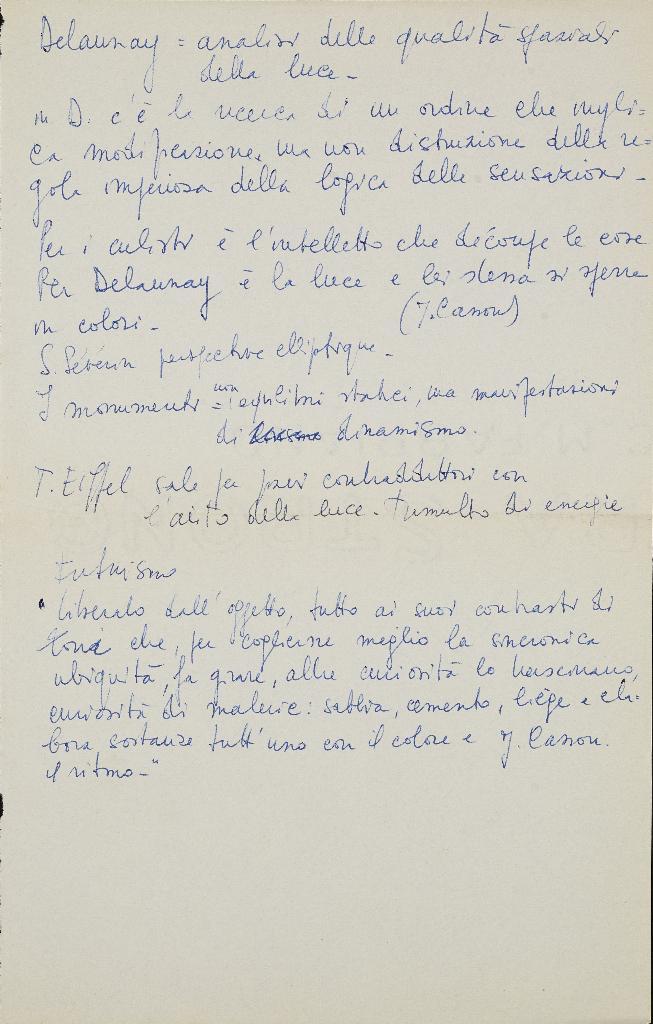 Delaunay = analisi delle qualità spaziali
della luce -
in D. c'è la ricerca di un ordine che impli=
ca modificazione, ma non distruzione della re=
gola imperiosa della logica delle sensazioni -
Per i cubisti è l'intelletto che découpe le cose
Per Delaunay è la luce e lei stessa si spezza
in colori - (J. Cassou)
S. Séverin perspective elliptique -
I monumenti = non equilibri statici, ma manifestazioni
di dinamismo.
T. Eiffel sale per piani contraddittori con
l'aiuto della luce - Tumulto di energie
Futurismo
"liberato dall'oggetto, tutto ai suoi contrasti di
tono che, per coglierne meglio la sincronica
ubiquità, fa girare, altre curiosità lo trascinano,
curiosità di materie: sabbia, cemento, liège e ela=
bora sostanze tutt'uno con il colore e J. Cassou.
il ritmo -"